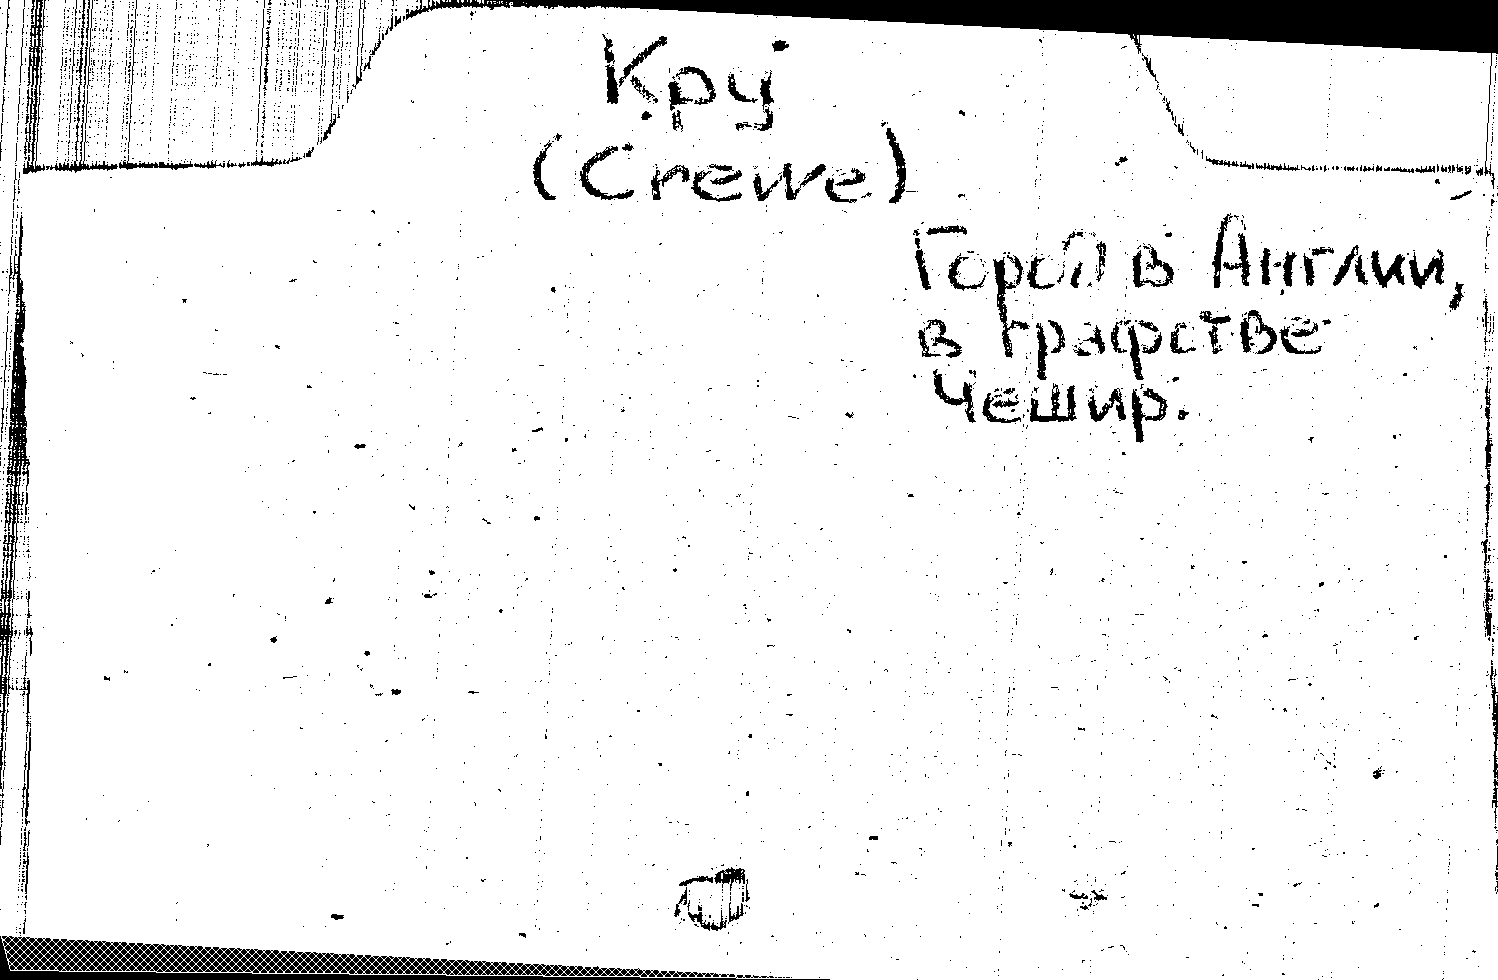 Кру
(Crewe)
Город в Англии,
в графстве
Чешир.